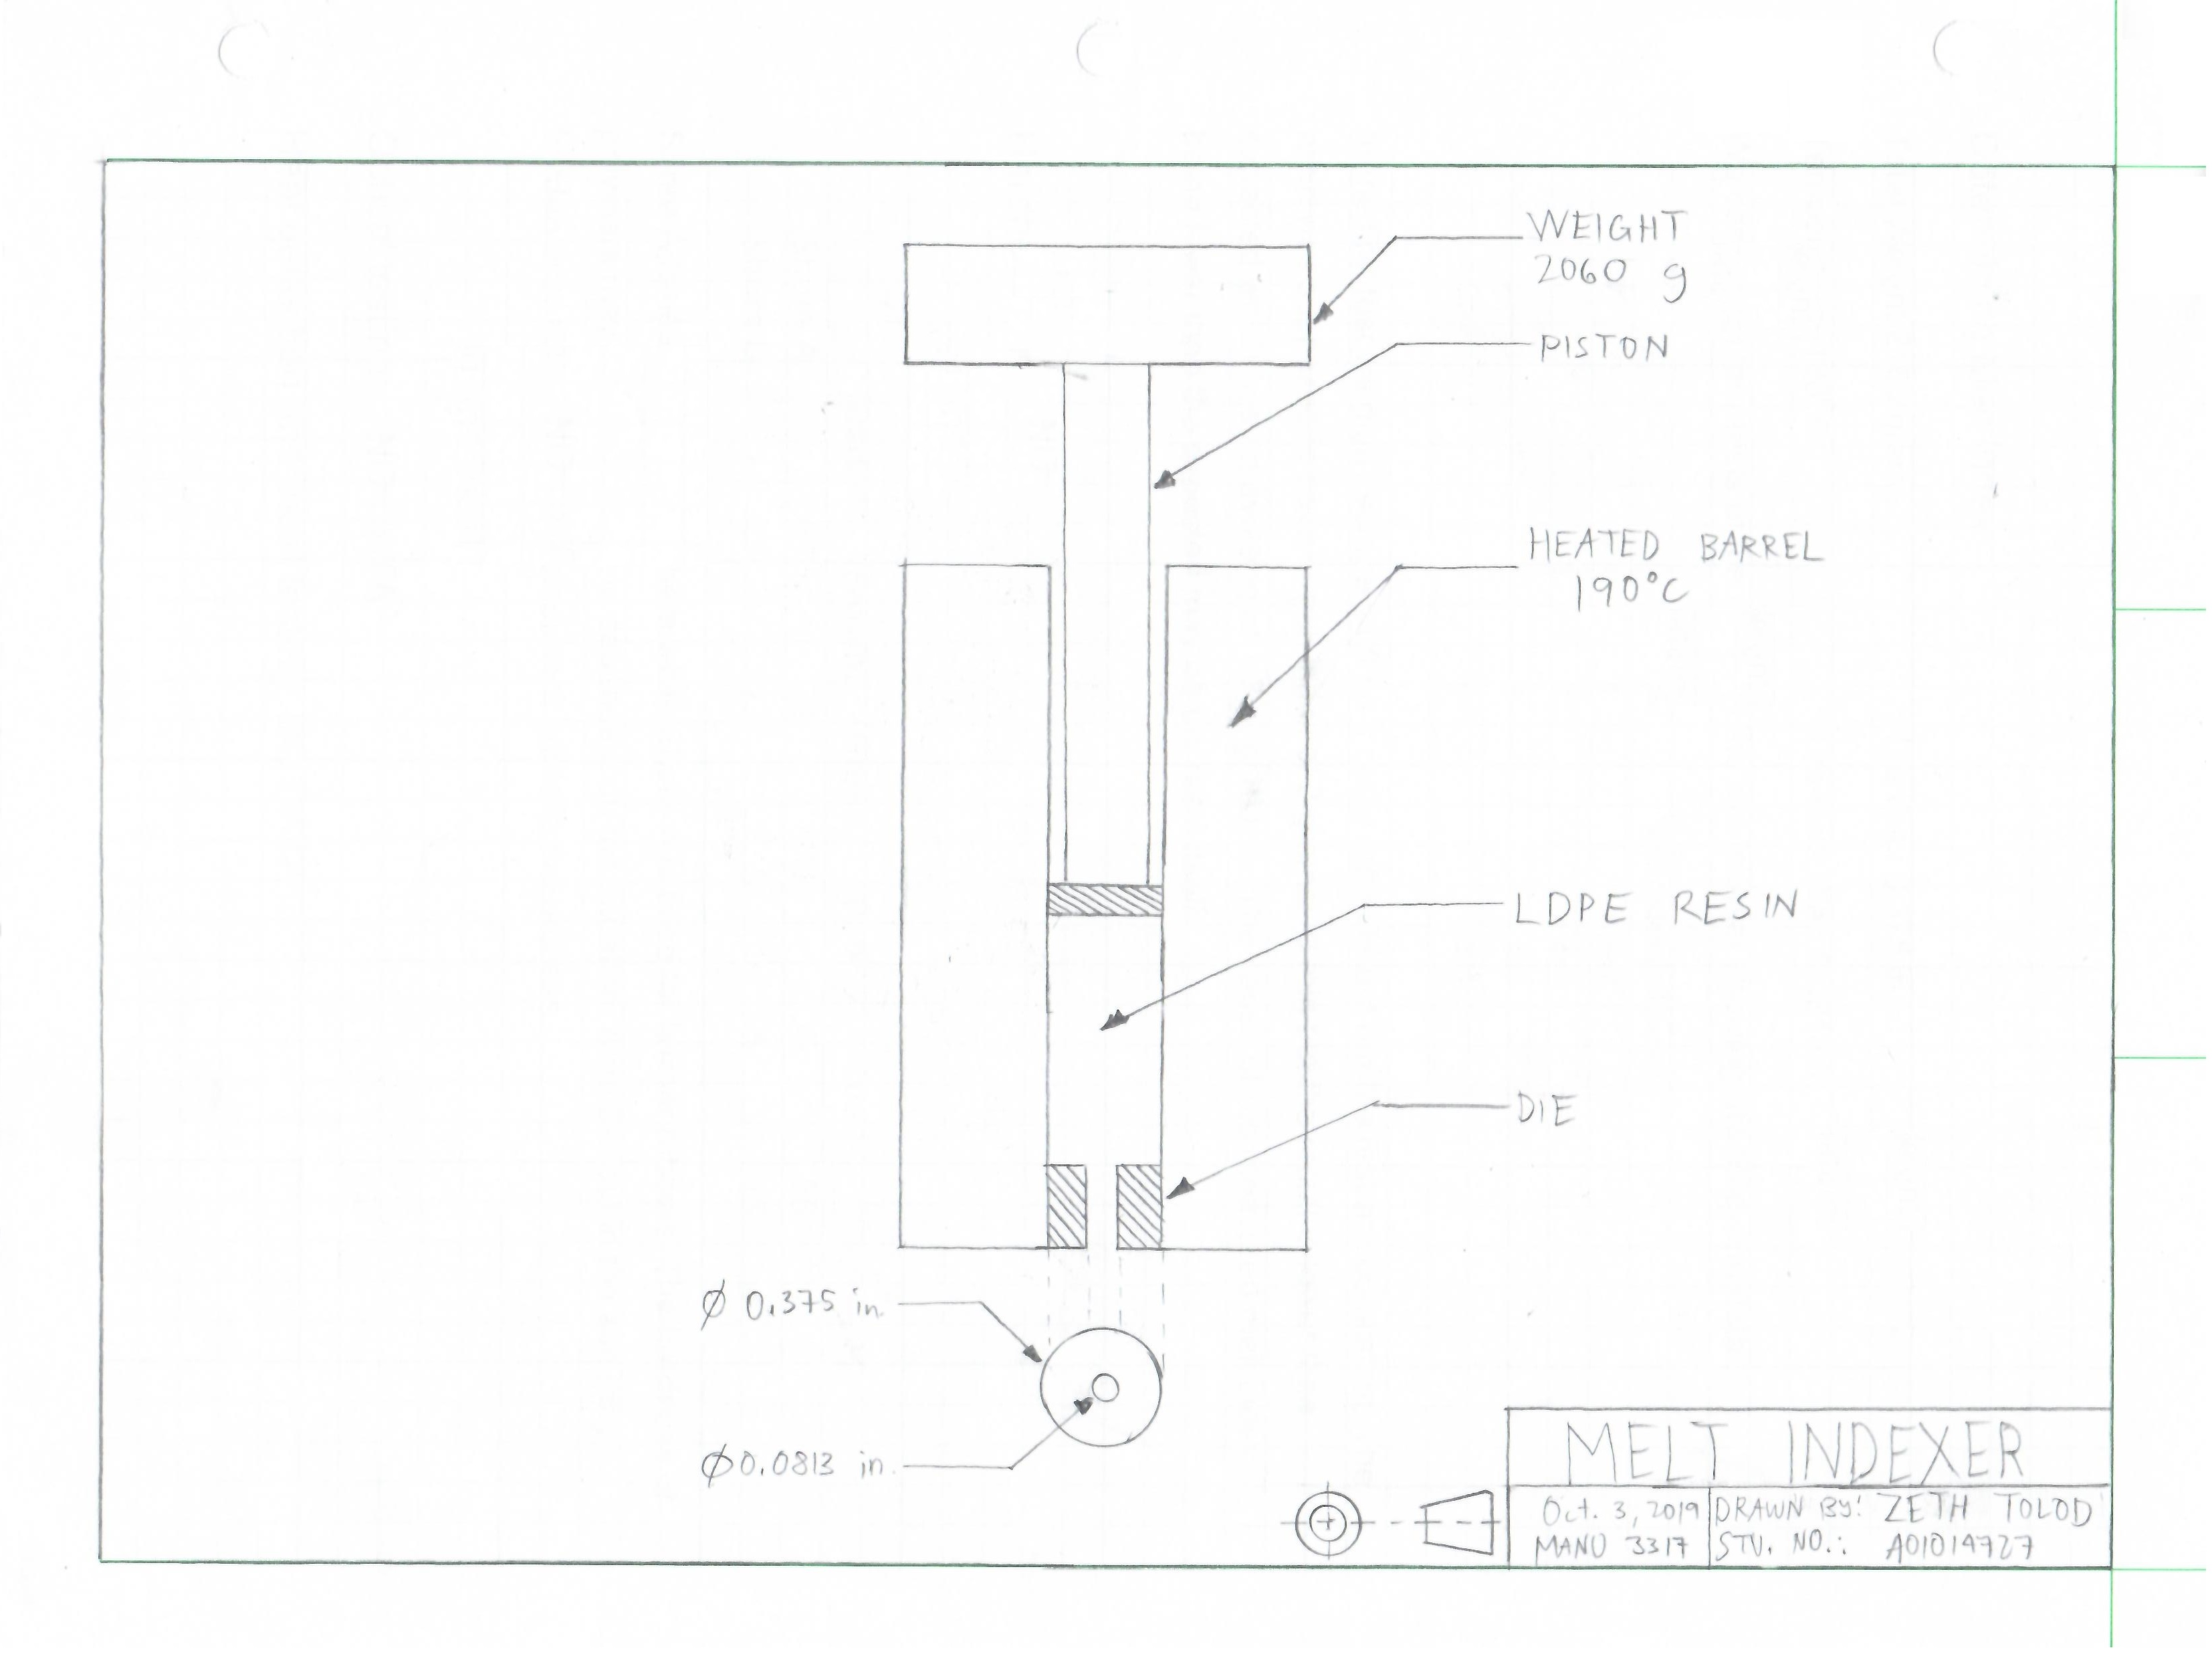 WEIGHT
2060 g
PISTON
HEATED BARREL
190°C
LDPE RESIN
DIE
Ø 0.375 in.
Ø0.0813 in.
MELT INDEXER
Oct. 3, 2019
DRAWN BY: ZETH TOLOD
MANU 3317
STU. NO.: A01014727